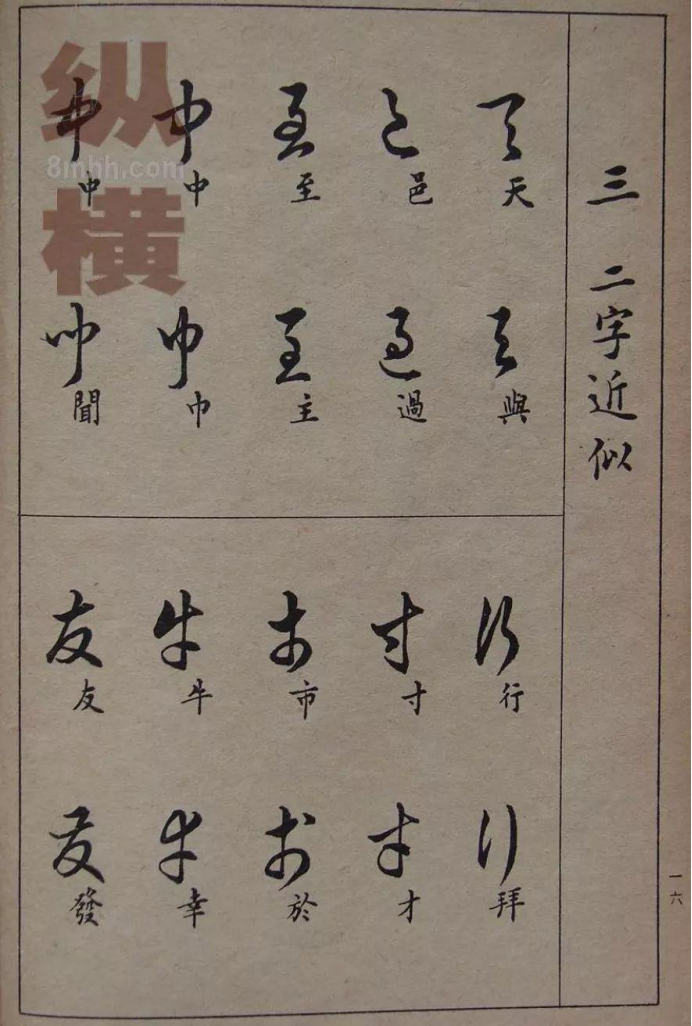 三 二字近似
天 邑 至 中 中
與 過 主 巾 聞
行 寸 市 牛 友
拜 才 於 幸 發
一六
纵横
8mhh.com